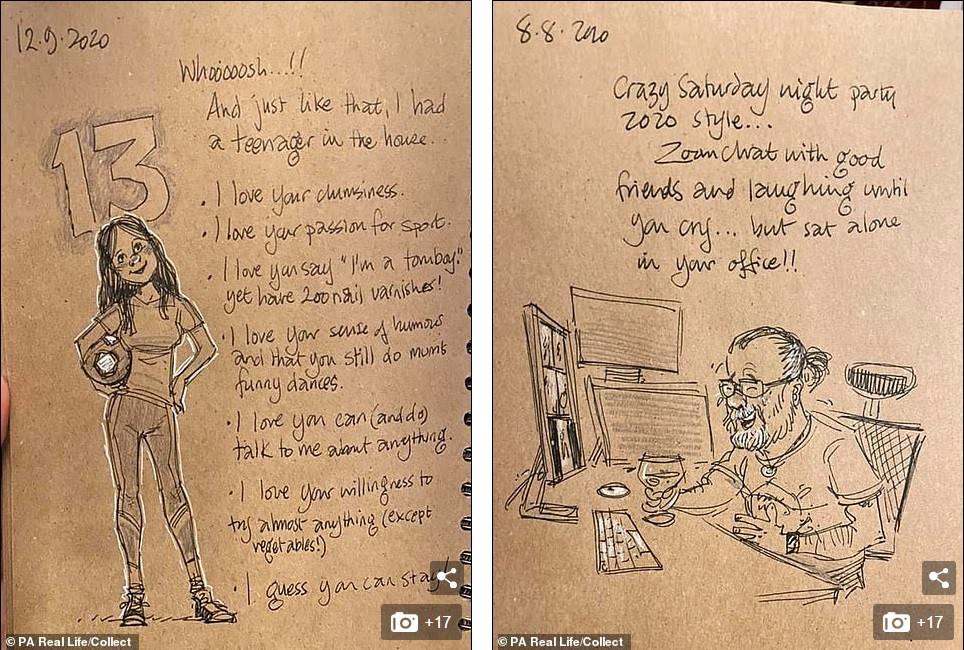 12.9.2020
Whoooosh...!!
And just like that, I had
a teenager in the house...
13
. I love your clumsiness.
. I love your passion for sport.
. I love you say "I'm a tomboy"
yet have 200 nail varnishes!
. I love your sense of humour
and that you still do mums
funny dances.
. I love you can (and do)
talk to me about anything.
. I love your willingness to
try almost anything (except
vegetables!)
. I guess you can stay
+17
© PA Real Life/Collect
8.8.2020
Crazy Saturday night party
2020 style...
Zoom chat with good
friends and laughing until
you cry... but sat alone
in your office!!
+17
© PA Real Life/Collect